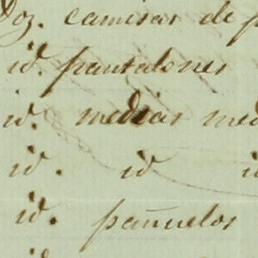 Doz. camisas de
id. pantalones
id. medias med
id. id id
id. pañuelos
id